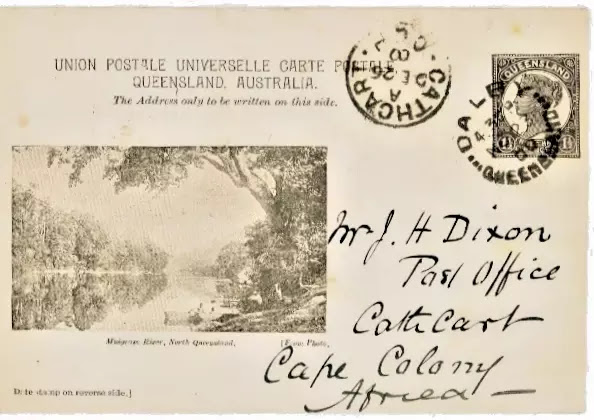 UNION POSTALE UNIVERSELLE CARTE POSTALE
QUEENSLAND, AUSTRALIA.
The Address only to be written on this side.
CATHCART
A
DE 26
QUEENSLAND
1½
DALBY
QUEENSLAND
Mr J. H Dixon
Post Office
Cathcart
Cape Colony
Africa
Mulgrave River, North Queensland.
Photo.
Date stamp on reverse side.]